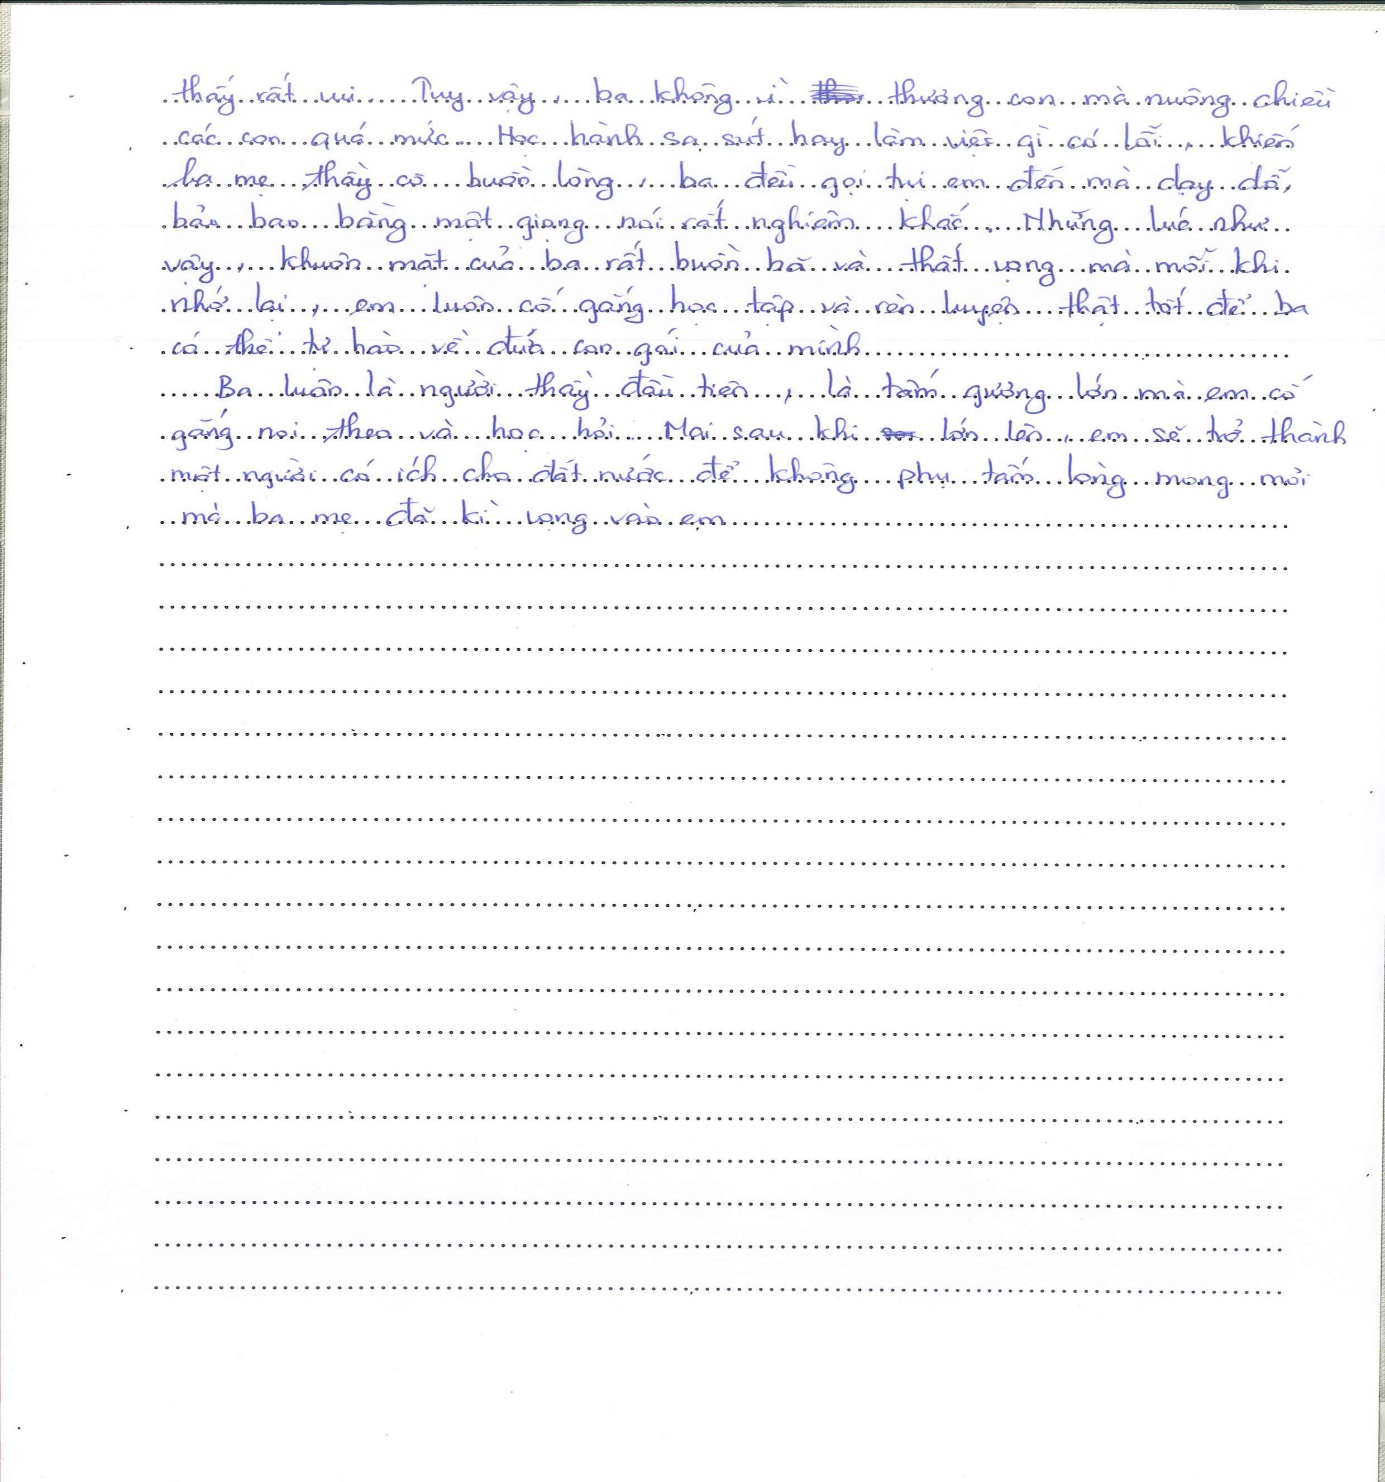 thấy rất vui. Tuy vậy, ba không vì thương con mà nuông chiều
các con quá mức. Học hành sa sút hay làm việc gì có lỗi, khiến
ba mẹ, thầy cô buồn lòng, ba đều gọi tụi em đến mà dạy dỗ,
bảo ban bằng một giọng nói rất nghiêm khắc. Những lúc như
vậy, khuôn mặt của ba rất buồn bã và thất vọng mà mỗi khi
nhớ lại, em luôn cố gắng học tập và rèn luyện thật tốt để ba
có thể tự hào về đứa con gái của mình.
Ba luôn là người thầy đầu tiên, là tấm gương lớn mà em cố
gắng noi theo và học hỏi. Mai sau khi lớn lên, em sẽ trở thành
một người có ích cho đất nước để không phụ tấm lòng mong mỏi
mà ba mẹ đã kì vọng vào em